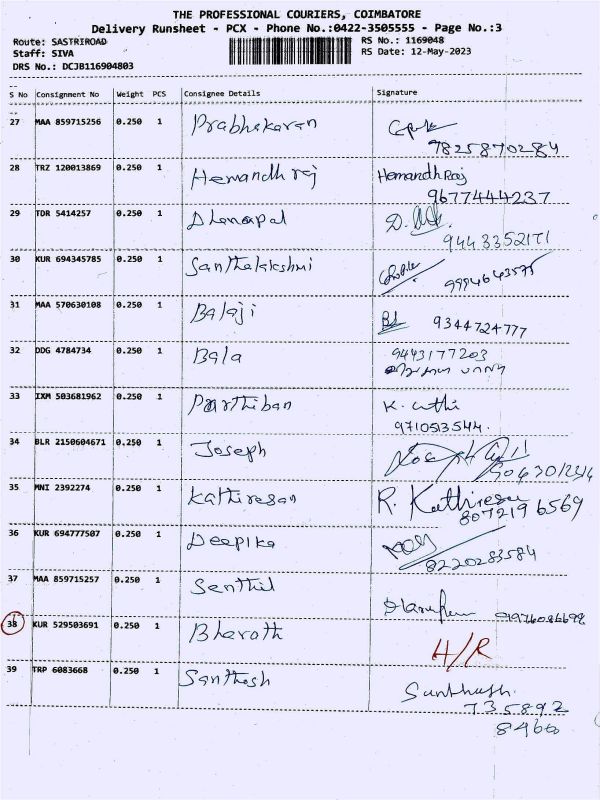 THE PROFESSIONAL COURIERS, COIMBATORE
Delivery Runsheet - PCX - Phone No.:0422-3505555 - Page No.:3
Route: SASTRIROAD RS No.: 1169048
Staff: SIVA RS Date: 12-May-2023
DRS No.: DCJB116904803
S No Consignment No Weight PCS Consignee Details Signature
27 MAA 859715256 0.250 1 Prabhakaran
9825870284
28 TRZ 120013869 0.250 1 Hemandh raj Hemandh Raj
9677444237
29 TDR 5414257 0.250 1 Dhanapal D.
9443352171
30 KUR 694345785 0.250 1 Santhalakshmi
9994643575
31 MAA 570630108 0.250 1 Balaji 9344724777
32 DDG 4784734 0.250 1 Bala 9443177203
33 IXM 503681962 0.250 1 Parthiban K.
9710513544.
34 BLR 2150604671 0.250 1 Joseph
35 MNI 2392274 0.250 1 Kathiresan R. Kathiresan
8072196569
36 KUR 694777507 0.250 1 Deepika
8220283584
37 MAA 859715257 0.250 1 Senthil
38 KUR 529503691 0.250 1 Bharath H/R
39 TRP 6083668 0.250 1 Santhosh Santhosh.
735892
8460